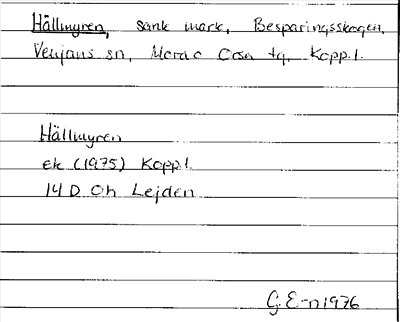 Hällmyren, sank mark, Besparingsskogen,
Venjans sn, Mora o Orsa tg, Kopp.l.
Hällmyren
ek (1975) Kopp.l.
14 D Oh Lejden
G. E-n 1976